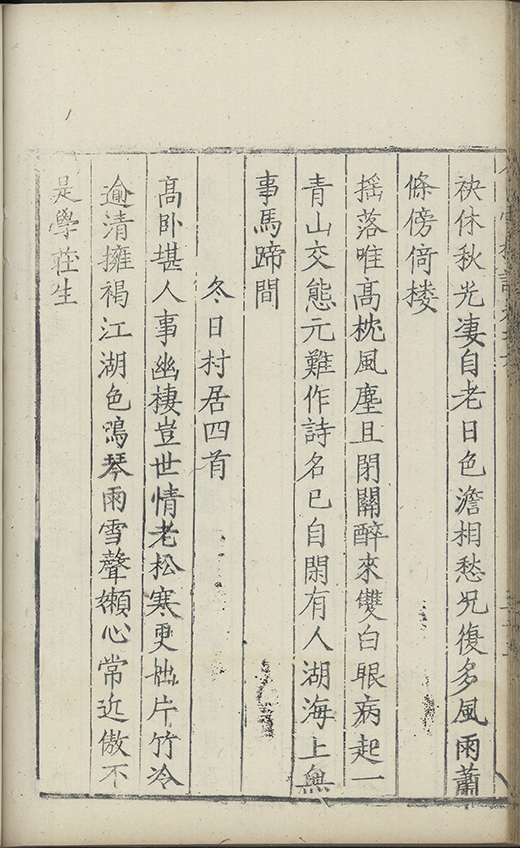 袂休秋光凄自老日色澹相愁况復多風雨蕭
條傍倚楼
摇落唯高枕風塵且閉關醉來雙白眼病起一
青山交態元難作詩名已自閑有人湖海上無
事馬蹄間
冬日村居四首
高卧堪人事幽棲豈世情老松寒更拙片竹冷
逾清擁褐江湖色鳴琴雨雪聲嬾心常近傲不
是學莊生